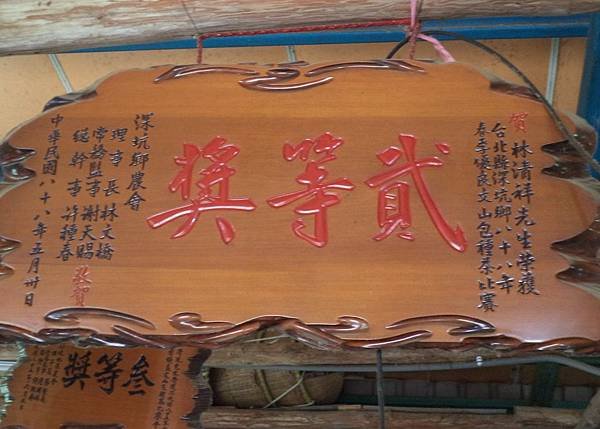 賀林清祥先生榮獲
台北縣深坑鄉八十八年
春季優良文山包種茶比賽
貳等獎
深坑鄉農會
理事長林文橋
常務監事謝天賜
總幹事許種春
敬賀
中華民國八十八年五月卅日
叁等獎